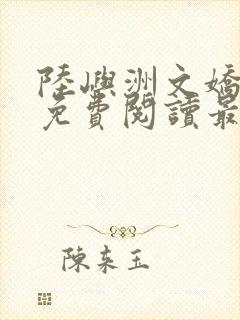 陸嶼洲文嬌
免費閱讀最
陳来玉